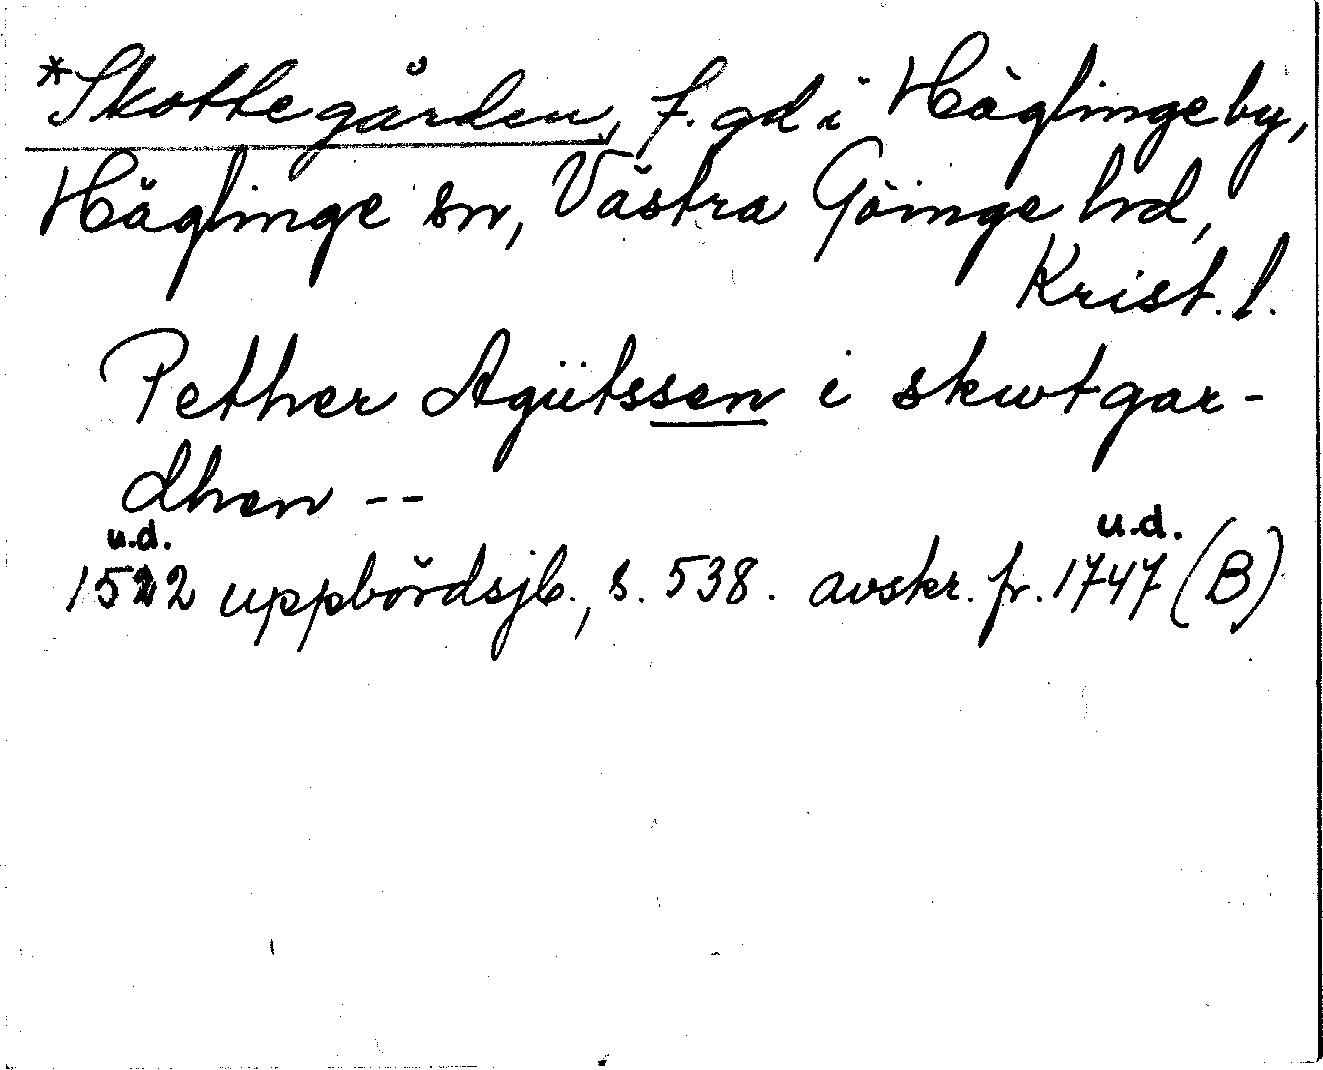 *Skottegården, f. gd i Häglinge by,
Häglinge sn, Västra Göinge hrd,
Krist. l.
Pether Agütssen i skwtgar-
dhen --
u.d. u.d.
1522 uppbördsjb., s. 538. avskr. fr. 1747 (B)